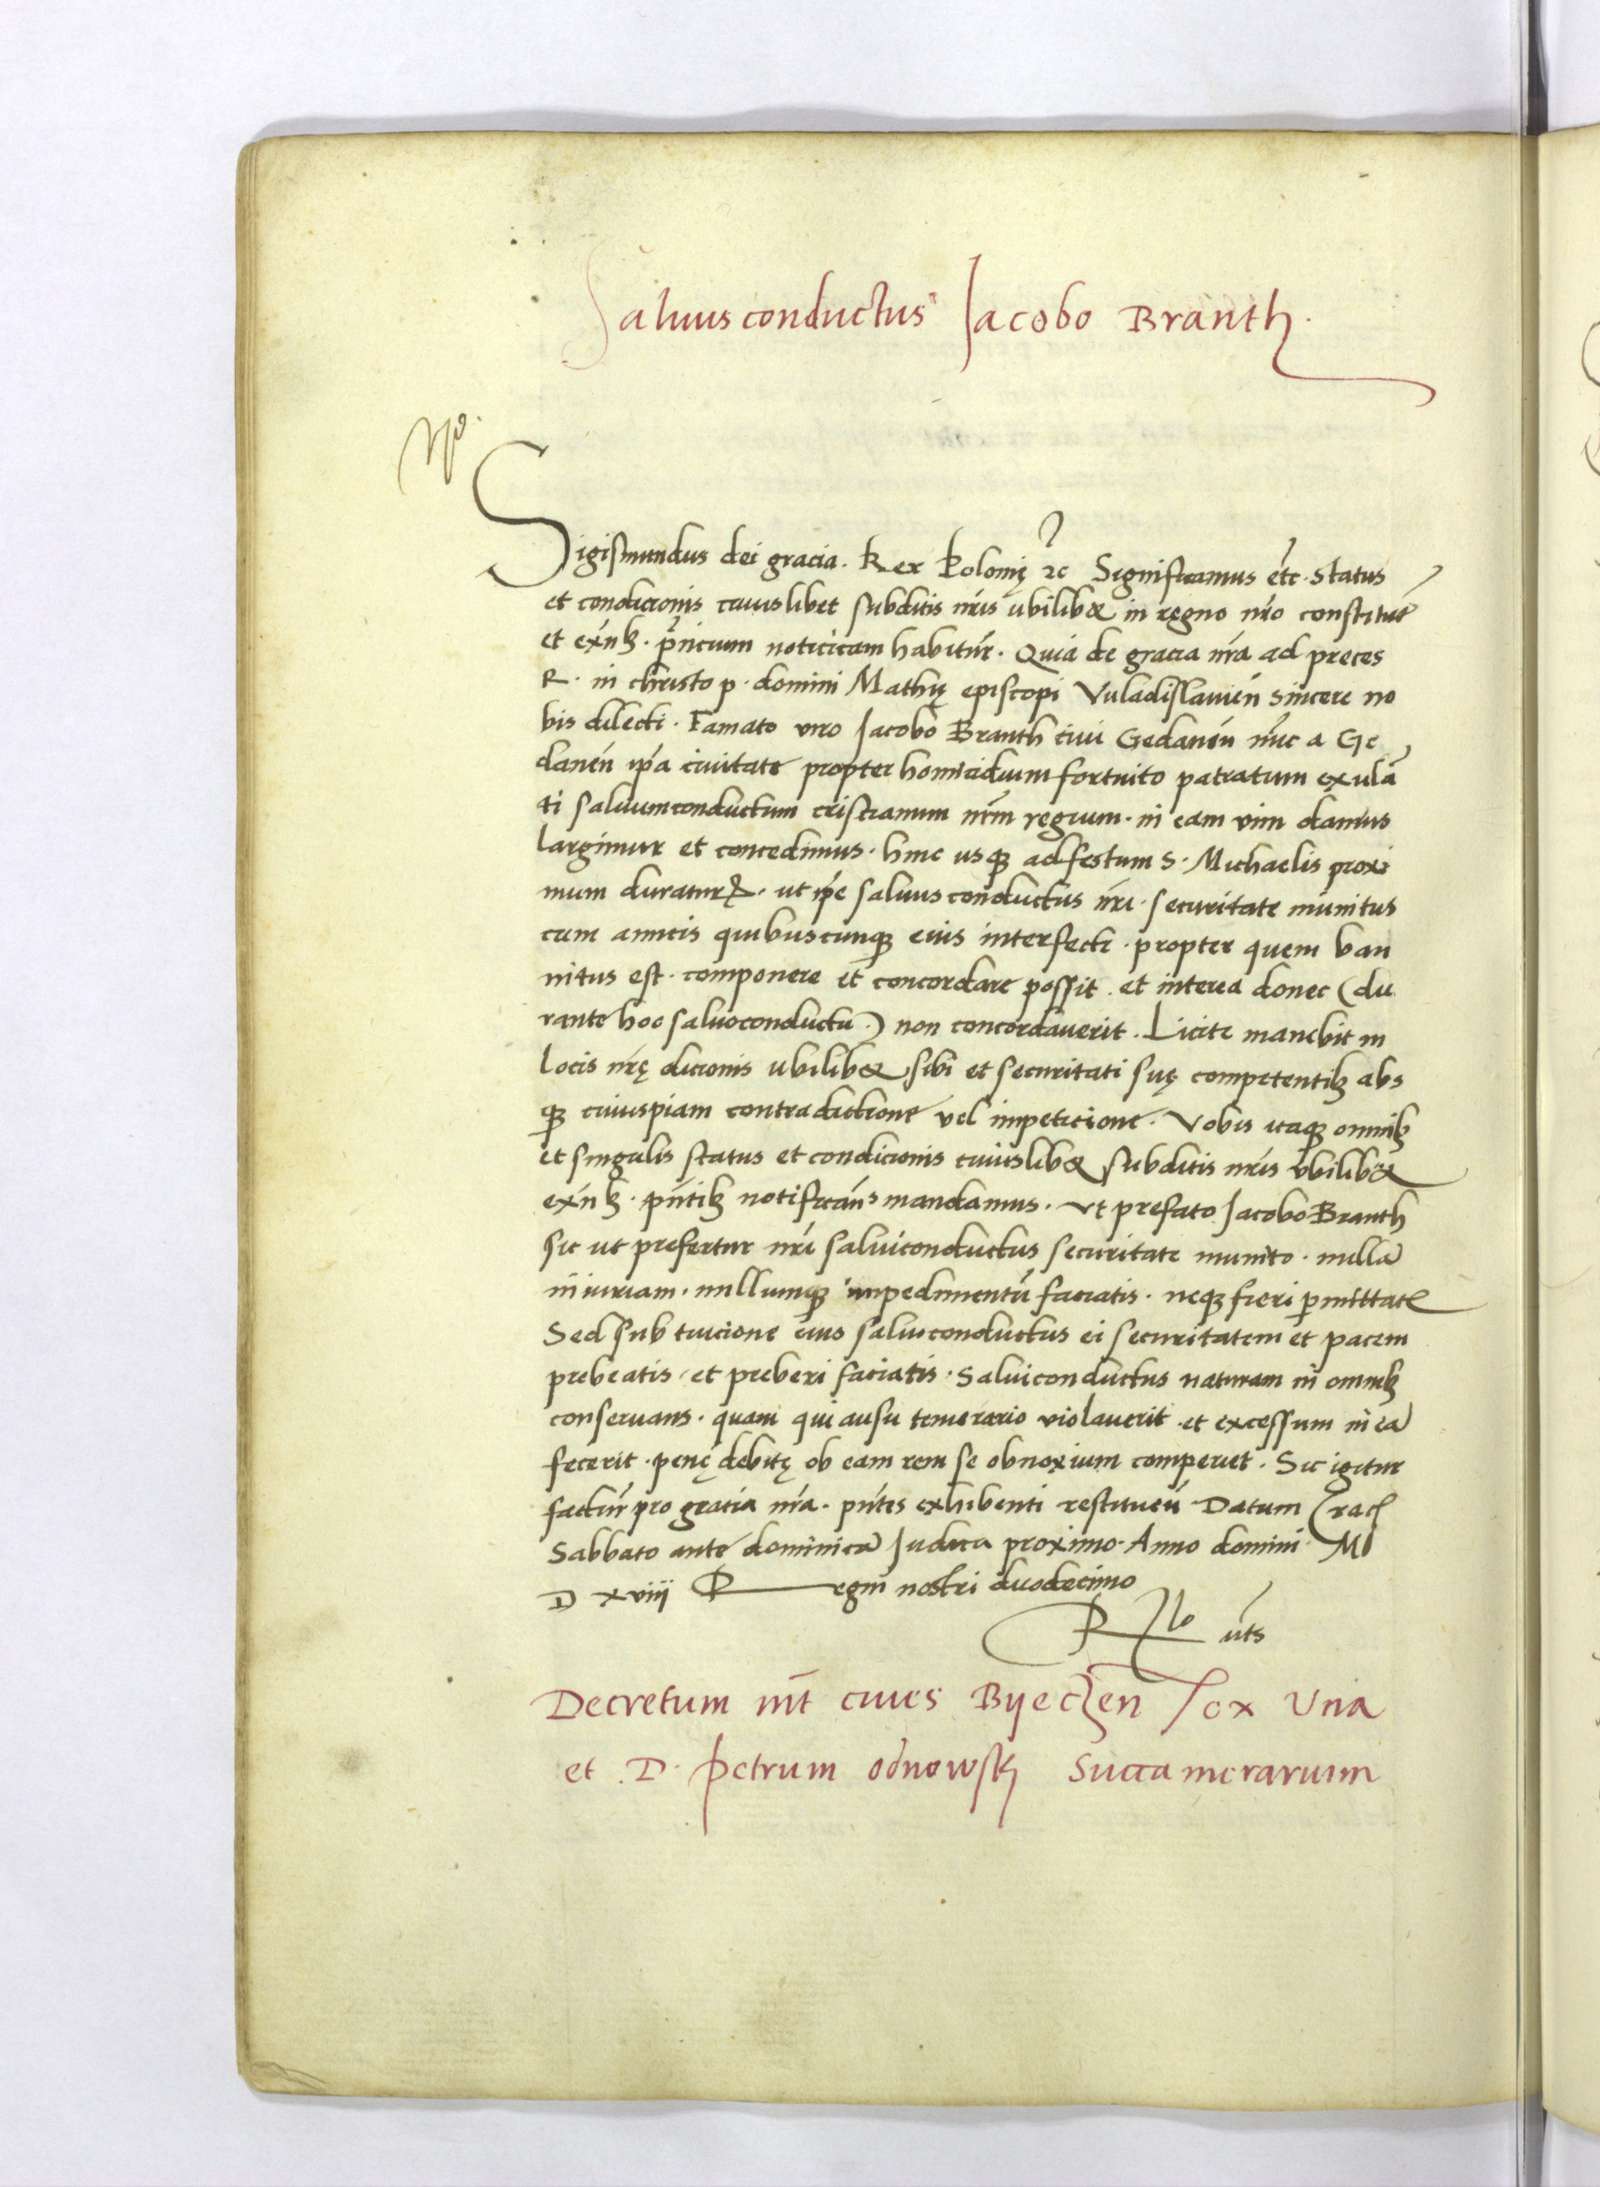 Saluusconductus Jacobo Branth.
Sigismundus dei gracia. Rex Polonię ꝛc Significamus etc. status
et condicionis cuiuslibet subditis nr̃is ubilibꝫ in regno nr̃o constitut
et exñtibꝫ. pñcium noticiam habitur̃. Quia de gracia nr̃a ad preces
R. in christo p. domini Mathię episcopi Vuladislauien̄ sincere no
bis dilecti. Famato viro Jacobo Branth ciui Gedanen̄ nũc a Ge
danen̄ ip̃a ciuitate propter homicidium fortuito patratum exulã
ti saluumconductum cristianum nr̃m regium. in eam vim damus
largimur et concedimus. hinc usqꝫ ad festum S. Michaelis proxi
mum duraturꝝ. ut ip̃e saluusconductus nr̃i. securitate munitus
cum amicis quibuscunqꝫ eius interfecti. propter quem ban
nitus est. componere et concordare possit. et interea donec (du
rante hoc saluoconductu.) non concordauerit. Licite manebit in
locis nr̃ę dicionis ubilibꝫ sibi et securitati suę competentibꝫ abs
qꝫ cuiuspiam contradictione vel impeticione. Vobis itaqꝫ omnibꝫ
et singulis status et condicionis cuiuslibꝫ subditis nr̃is vbilibꝫ
exñbꝫ. pñtibꝫ notifican̄s mandamus. vt prefato Jacobo Branth
sic ut prefertur nr̃i saluiconductus securitate munito. nullã
iniuriam. nullumqꝫ impedimentũ faciatis. neqꝫ fieri p̱mittatis
Sed sub tuicione eius saluiconductus ei securitatem et pacem
prebeatis, et preberi faciatis. Saluiconductus naturam in omnibꝫ
conseruans. quam qui ausu temerario violauerit. et excessum in eã
fecerit. penę debitę ob eam rem se obnoxium comperiet. Sic igitur
factur̃ pro gracia nr̃a. pñtes exhibenti restituen̄ Datum Crac̄
Sabbato ante dominicã Judica proximo. Anno domini. M
D xviij Regni nostri duodecimo
R uts
Decretum int ciues Byeczen ex vna
et D. Petrum odnowsky Succamerarium